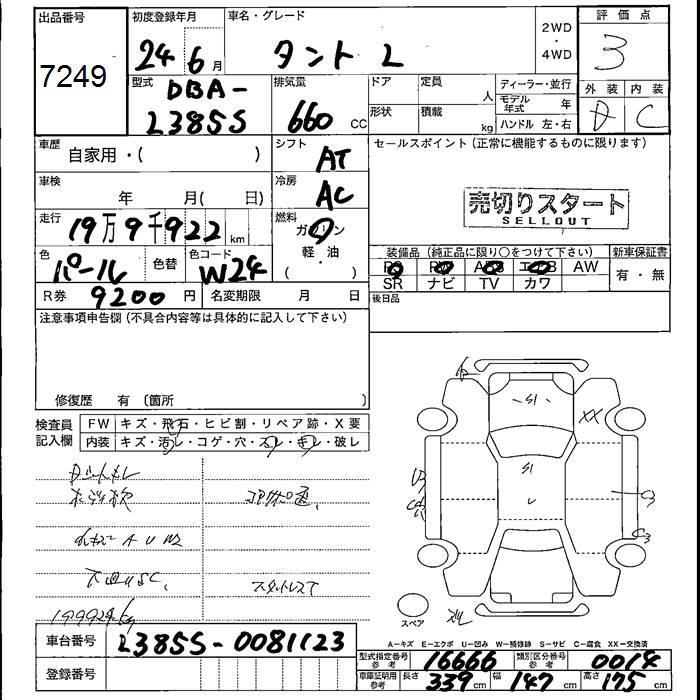 出品番号
7249
初度登録年月
24年6月
車名・グレード
タント L
2WD
・
4WD
評価点
3
外装 内装
D C
型式
DBA-
L385S
排気量
660 CC
ドア 定員 人
形状 積載 kg
ディーラー・並行
モデル年式 年
ハンドル 左・右
車歴
自家用・( )
シフト
AT
セールスポイント(正常に機能するものに限ります)
売切りスタート
SELLOUT
車検 年 月( 日)
冷房
AC
走行
19万9千922 km
燃料
ガソリン
軽・油
( )
色
パール
色替
色コード
W24
R券 9200円
名変期限 月 日
装備品(純正品に限り○をつけて下さい)
AW
SR ナビ TV カワ
新車保証書
有・無
後日品
注意事項申告欄(不具合内容等は具体的に記入して下さい)
修復歴 有 〔箇所 〕
検査員記入欄
FW キズ・飛石・ヒビ割・リペア跡・X要
内装 キズ・汚レ・コゲ・穴・スレ・キレ・破レ
S1
XX
S1
スペア
A−キズ E−エクボ U−凹み W−補修跡 S−サビ C−腐食 XX−交換済
車台番号 L385S-0081123
登録番号
型式指定番号参考 16666 類別区分番号参考 0014
車庫証明用参考 長さ 339cm 幅 147cm 高さ 175cm